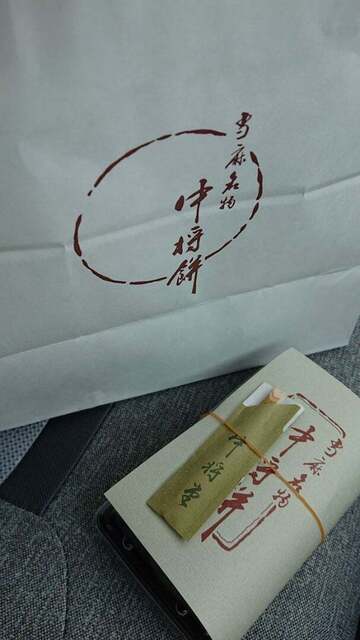 当麻名物
中将餅
中将堂
当麻名物
中将餅